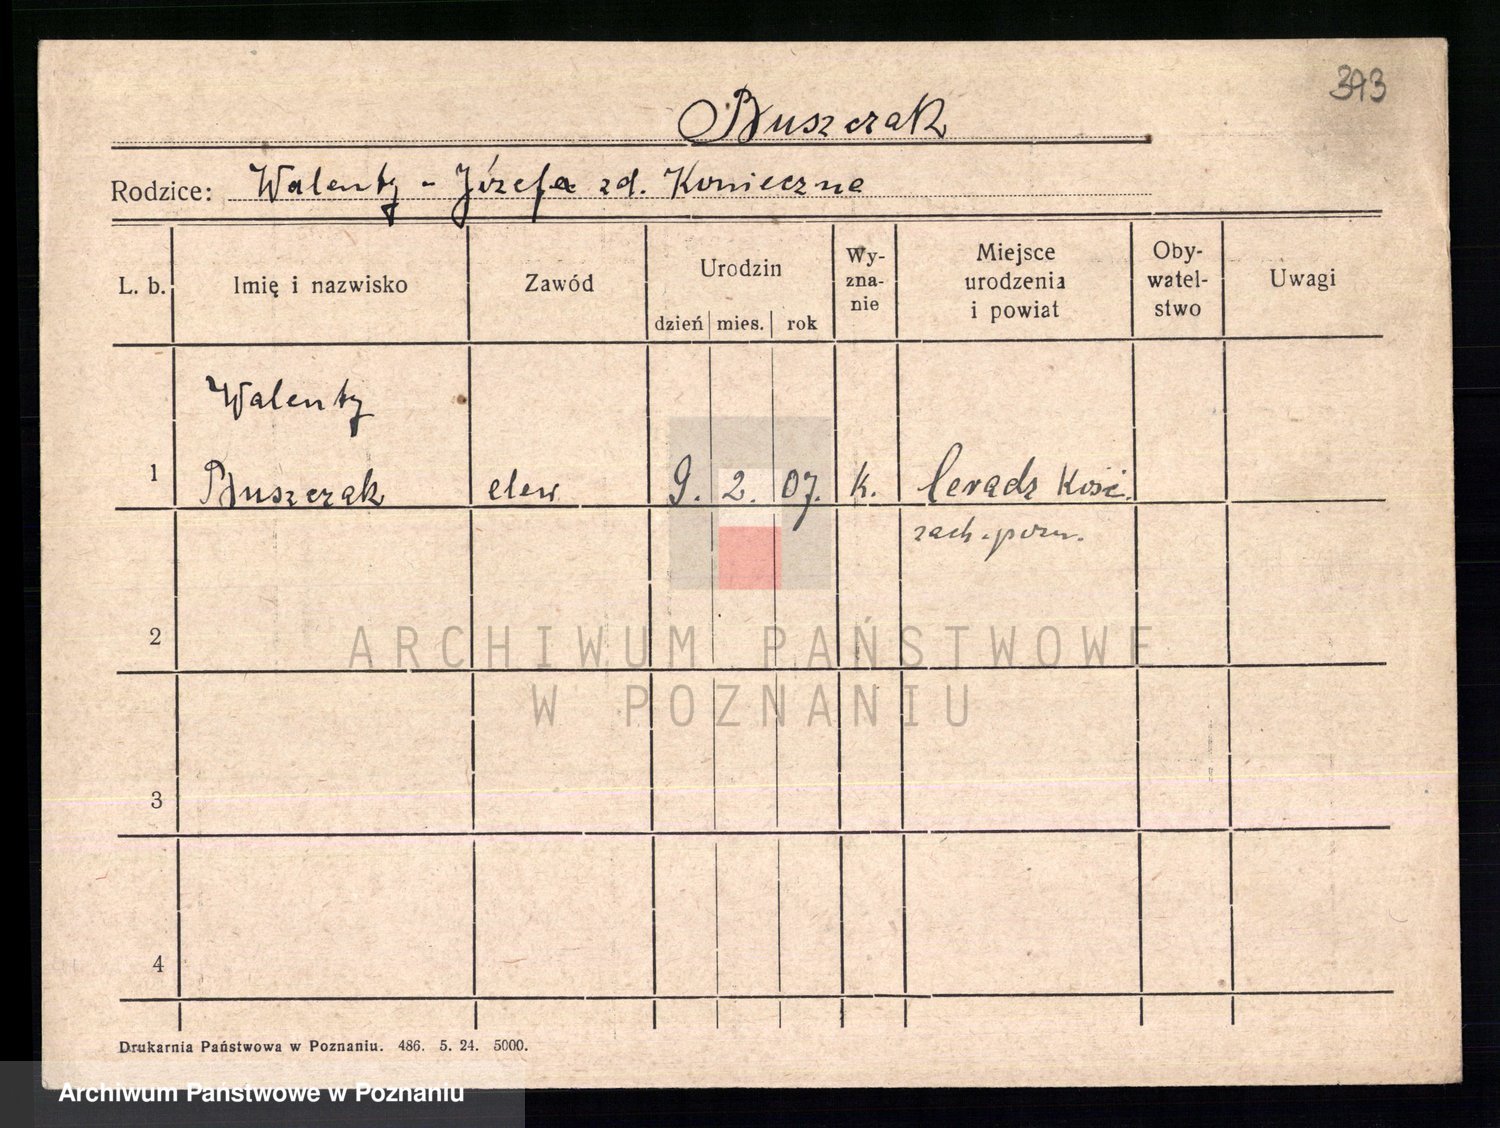 393
Buszczak
Rodzice: Walenty - Józefa zd. Konieczna
L. b.
Imię i nazwisko
Zawód
Urodzin
dzień mies. rok
Wy-
zna-
nie
Miejsce
urodzenia
i powiat
Oby-
watel-
stwo
Uwagi
Walenty
1 Buszczak elew 9. 2. 07. k. Ceradz Kość.
zach.-pozn.
2
3
4
ARCHIWUM PAŃSTWOWE
W POZNANIU
Drukarnia Państwowa w Poznaniu. 486. 5. 24. 5000.
Archiwum Państwowe w Poznaniu